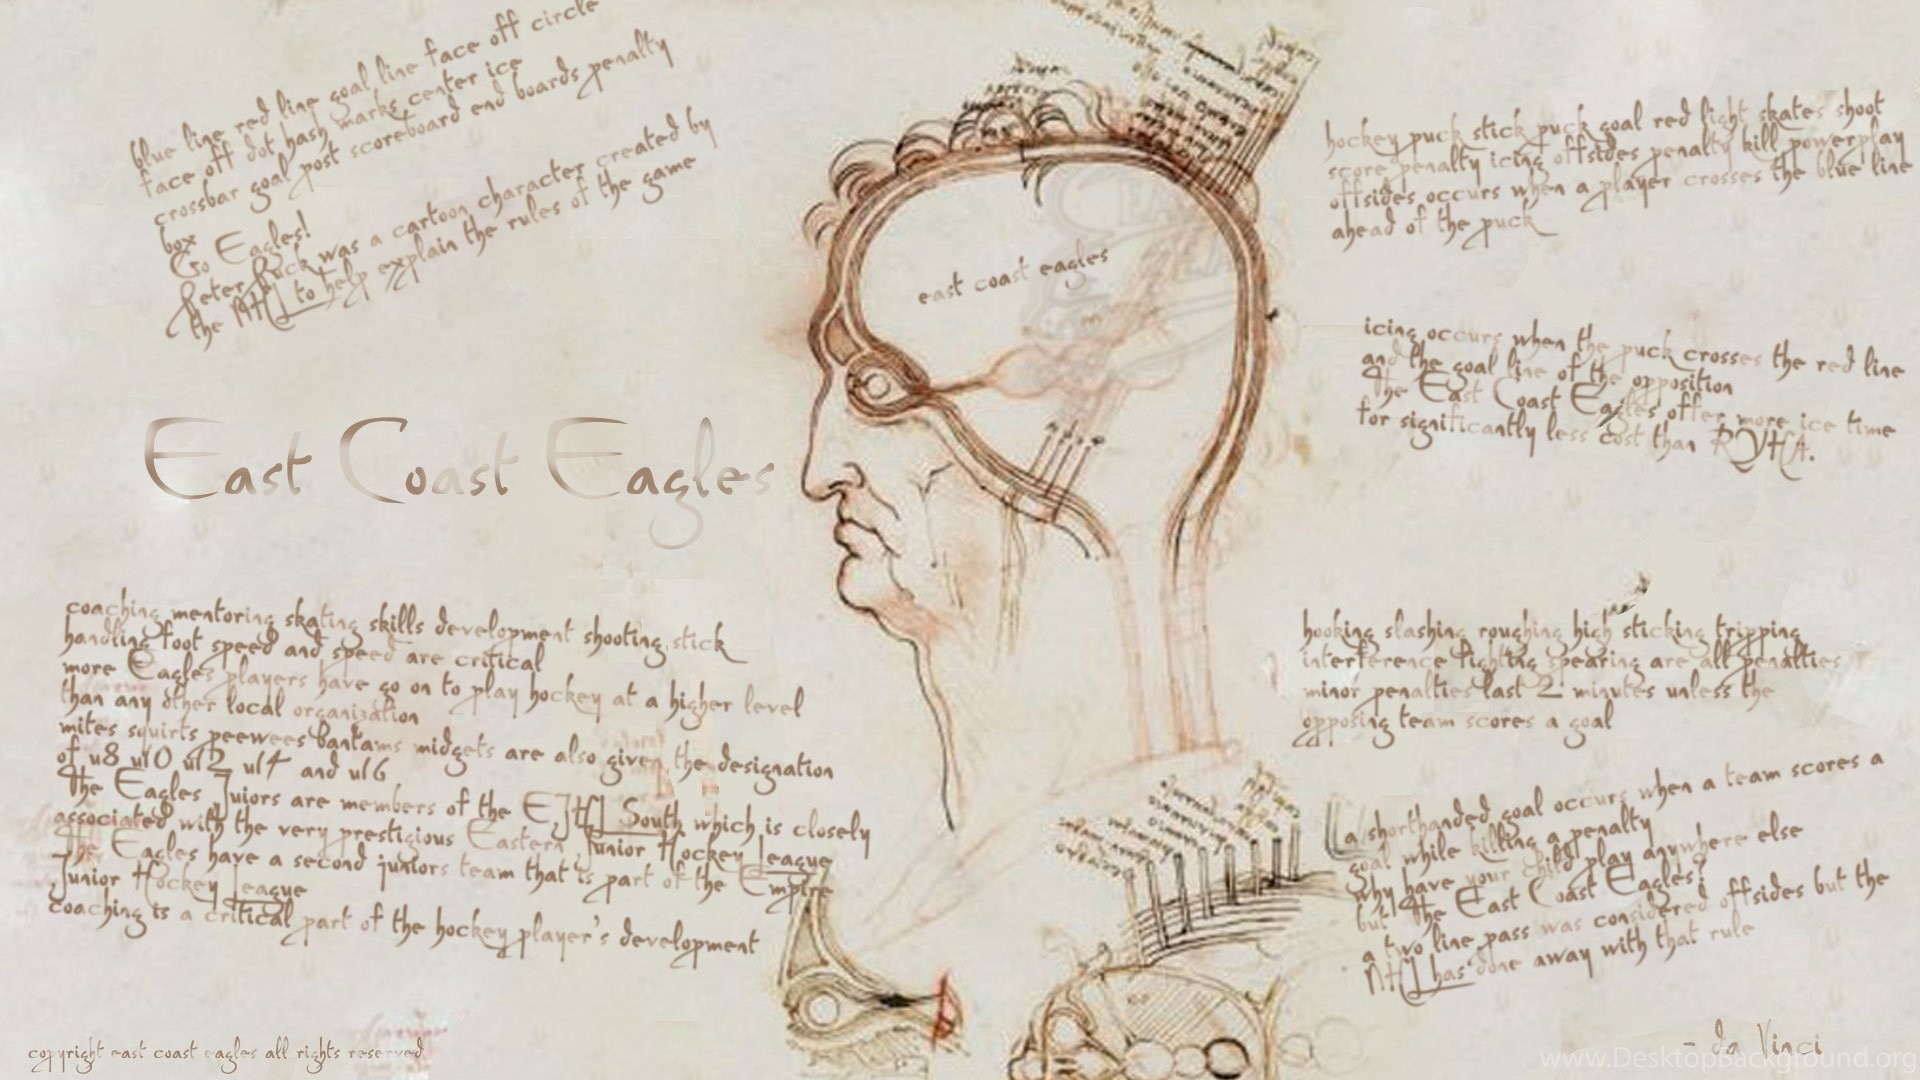 blue line red line goal line face off circle
face off dot hash marks center ice
crossbar goal post scoreboard end boards penalty
box
Go Eagles!
Peter Puck was a cartoon character created by
the NHL to help explain the rules of the game
East Coast Eagles
coaching mentoring skating skills development shooting stick
handling foot speed and speed are critical
more Eagles players have go on to play hockey at a higher level
than any other local organization
mites squirts peewees bantams midgets are also given the designation
of u8 u10 u12 u14 and u16
The Eagles Juiors are members of the EJHL South which is closely
associated with the very prestigious Eastern Junior Hockey League
The Eagles have a second juniors team that is part of the Empire
Junior Hockey League
coaching is a critical part of the hockey player's development
copyright east coast eagles all rights reserved
east coast eagles
hockey puck stick puck goal red light skates shoot
score penalty icing offsides penalty kill powerplay
offsides occurs when a player crosses the blue line
ahead of the puck
icing occurs when the puck crosses the red line
and the goal line of the opposition
The East Coast Eagles offer more ice time
for significantly less cost than RYHA.
hooking slashing roughing high sticking tripping
interference fighting spearing are all penalties
minor penalties last 2 minutes unless the
opposing team scores a goal
a shorthanded goal occurs when a team scores a
goal while killing a penalty
why have your child play anywhere else
but The East Coast Eagles?
a two line pass was considered offsides but the
NHL has done away with that rule
- da Vinci
www.DesktopBackground.org